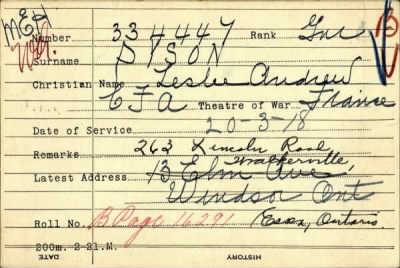 MEd
Number 334447 Rank Gnr B
Surname DYSON
Christian Name Leslie Andrew
CFA Theatre of War France
Date of Service 20-3-18
Remarks 263 Lincoln Road
Walkerville,
Latest Address 13 Elm Ave
Windsor Ont
Roll No. B. Page 16291 Essex, Ontario.
200m. 2-21. M.
DATE
HISTORY